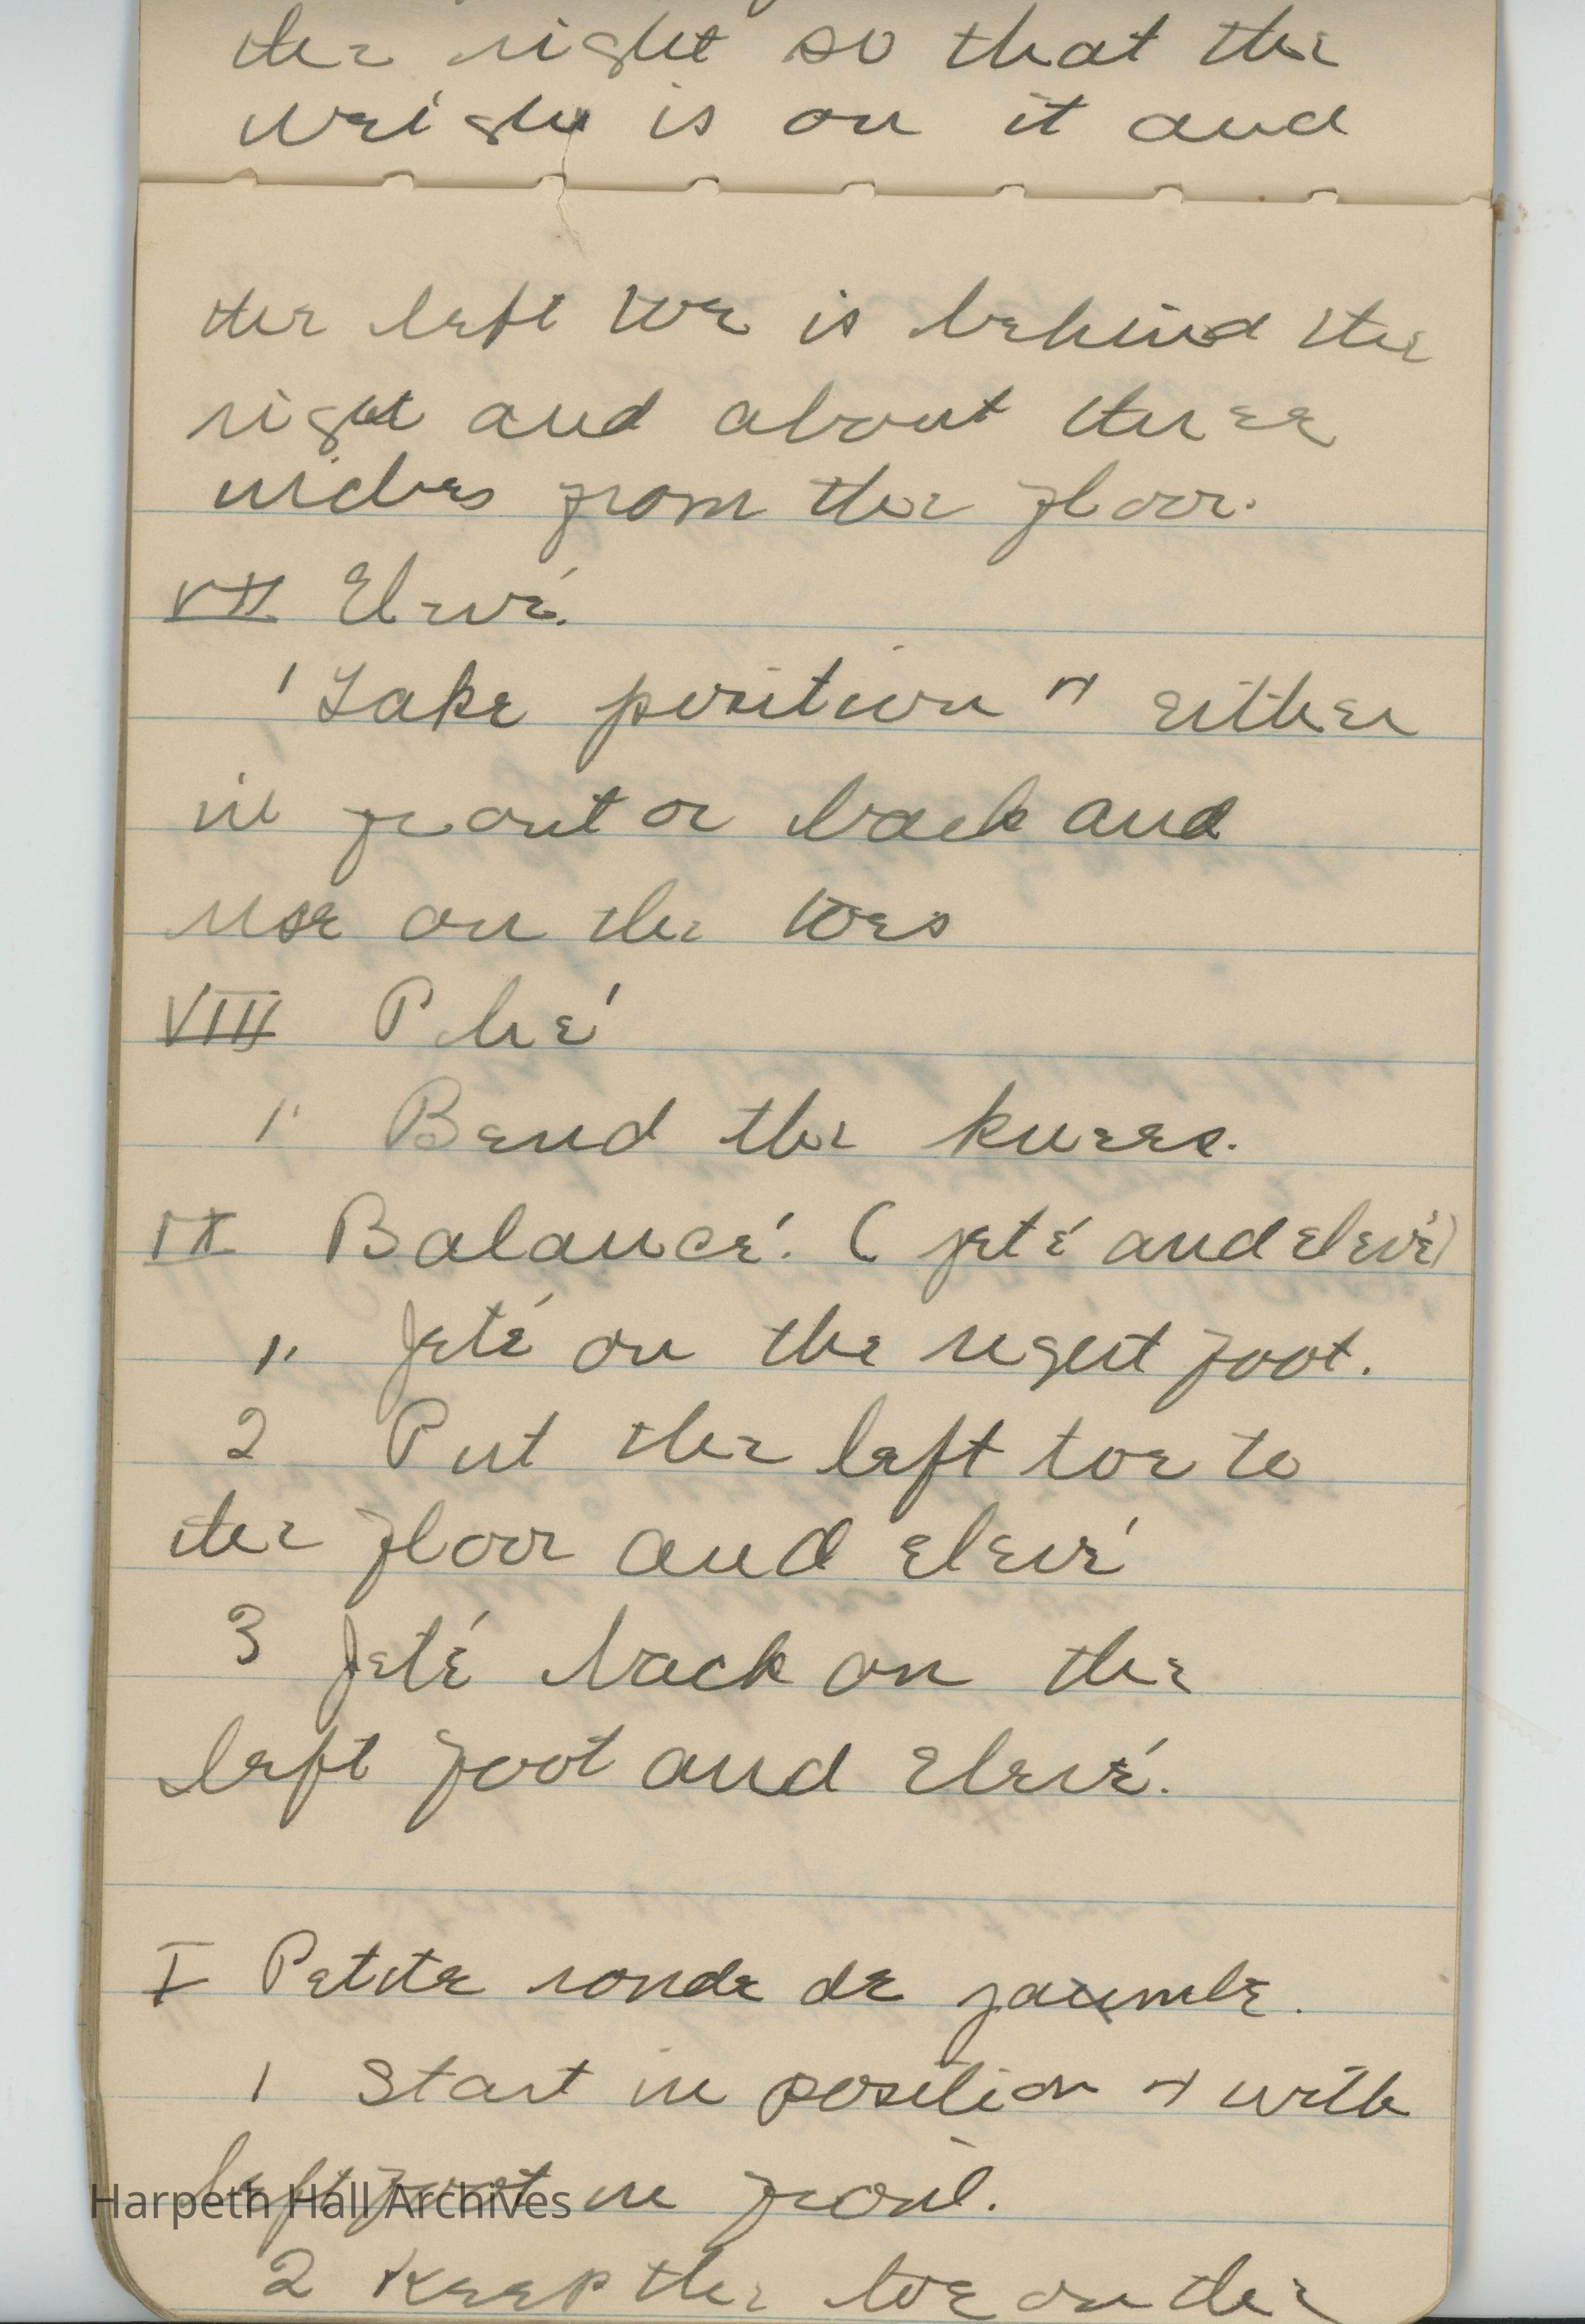 the right so that the
weight is on it and
the left toe is behind the
right and about three
inches from the floor.
VII Elevé.
1 Take position 4 either
in front or back and
rise on the toes
VIII Plié
1. Bend the knees.
IX Balancé. (jeté and elevé)
1. Jeté on the right foot.
2 Put the left toe to
the floor and elevé
3 Jeté back on the
left foot and elevé.
I Petite ronde de jaumbe.
1 Start in position 4 with
left foot in front.
Harpeth Hall Archives
2 Keep the toe on the